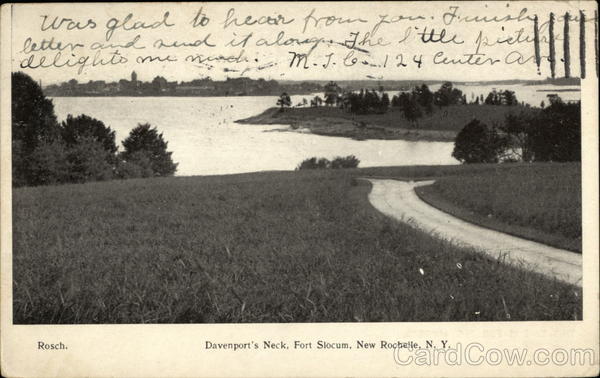 Was glad to hear from you. Finish your
letter and send it along. The little picture
delights me much. M.J.C. 124 Center Ave.
Rosch. Davenport's Neck, Fort Slocum, New Rochelle, N. Y.
CardCow.com